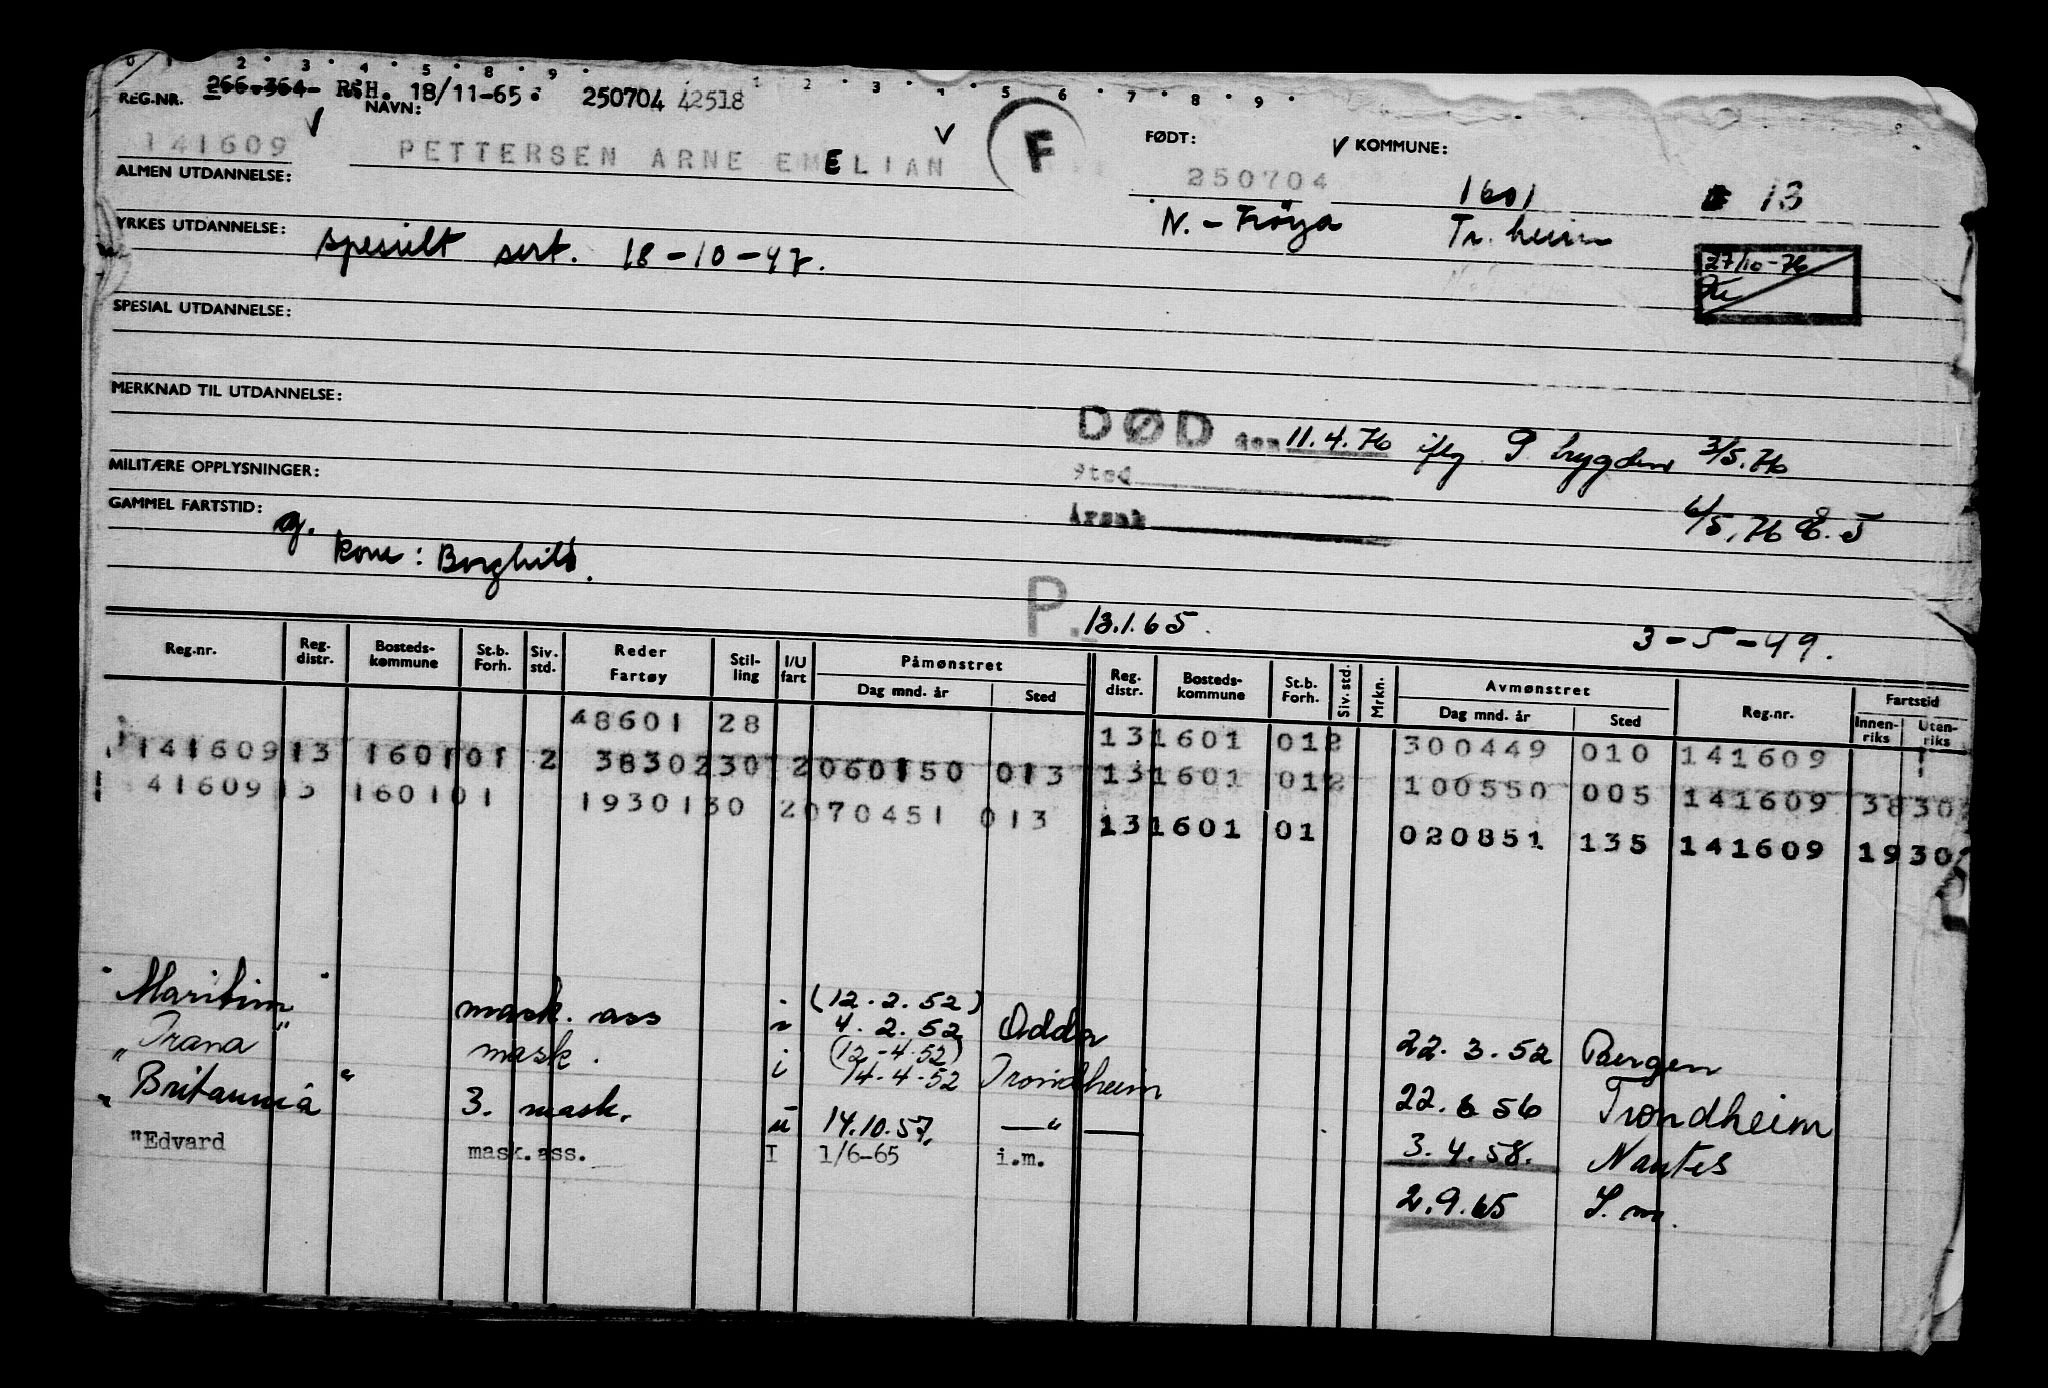 0 1 2 3 4 5 8 9 1 2 3 4 5 6 7 8 9
REG.NR. 266.364- RSH. 18/11-65 250704 42518
NAVN: FØDT: KOMMUNE:
141609 PETTERSEN ARNE EMELIAN F 250704 1601 13
ALMEN UTDANNELSE: N.-Frøya Tr.heim
YRKES UTDANNELSE: spesielt sert. 18-10-47.
27/10-76
SPESIAL UTDANNELSE:
MERKNAD TIL UTDANNELSE:
DØD den 11.4.76 iflg P trygden 3/5.76
MILITÆRE OPPLYSNINGER: Sted
GAMMEL FARTSTID: g. Årsak 6/5.76
kone: Borghild.
P. 13.1.65. 3-5-49.
Reg.nr. Reg. distr. Bosteds-kommune St.b. Forh. Siv. std. Reder Fartøy Stil-ling I/U fart Påmønstret Dag mnd. år Sted Reg. distr. Bosteds-kommune St.b. Forh. Siv. std. Mrkn. Avmønstret Dag mnd. år Sted Reg.nr. Fartstid Innen-riks Uten-riks
48601 28 131601 012 300449 010 141609
141609 13 1601 01 2 3830230 2060150 013 131601 012 100550 005 141609 3830
141609 13 1601 01 1930130 2070451 013 131601 01 020851 135 141609 1930
"Maritim" mask. ass i (12.2.52) 4.2.52 Odda 22.3.52 Bergen
"Trana" mask. i (12-4-52) 14-4-52 Trondheim 22.6 56 Trondheim
"Britannia" 3. mask. u 14.10.57. —"— 3.4.58. Nantes
"Edvard mask.ass. I 1/6-65 i.m. 2.9.65 I.m.